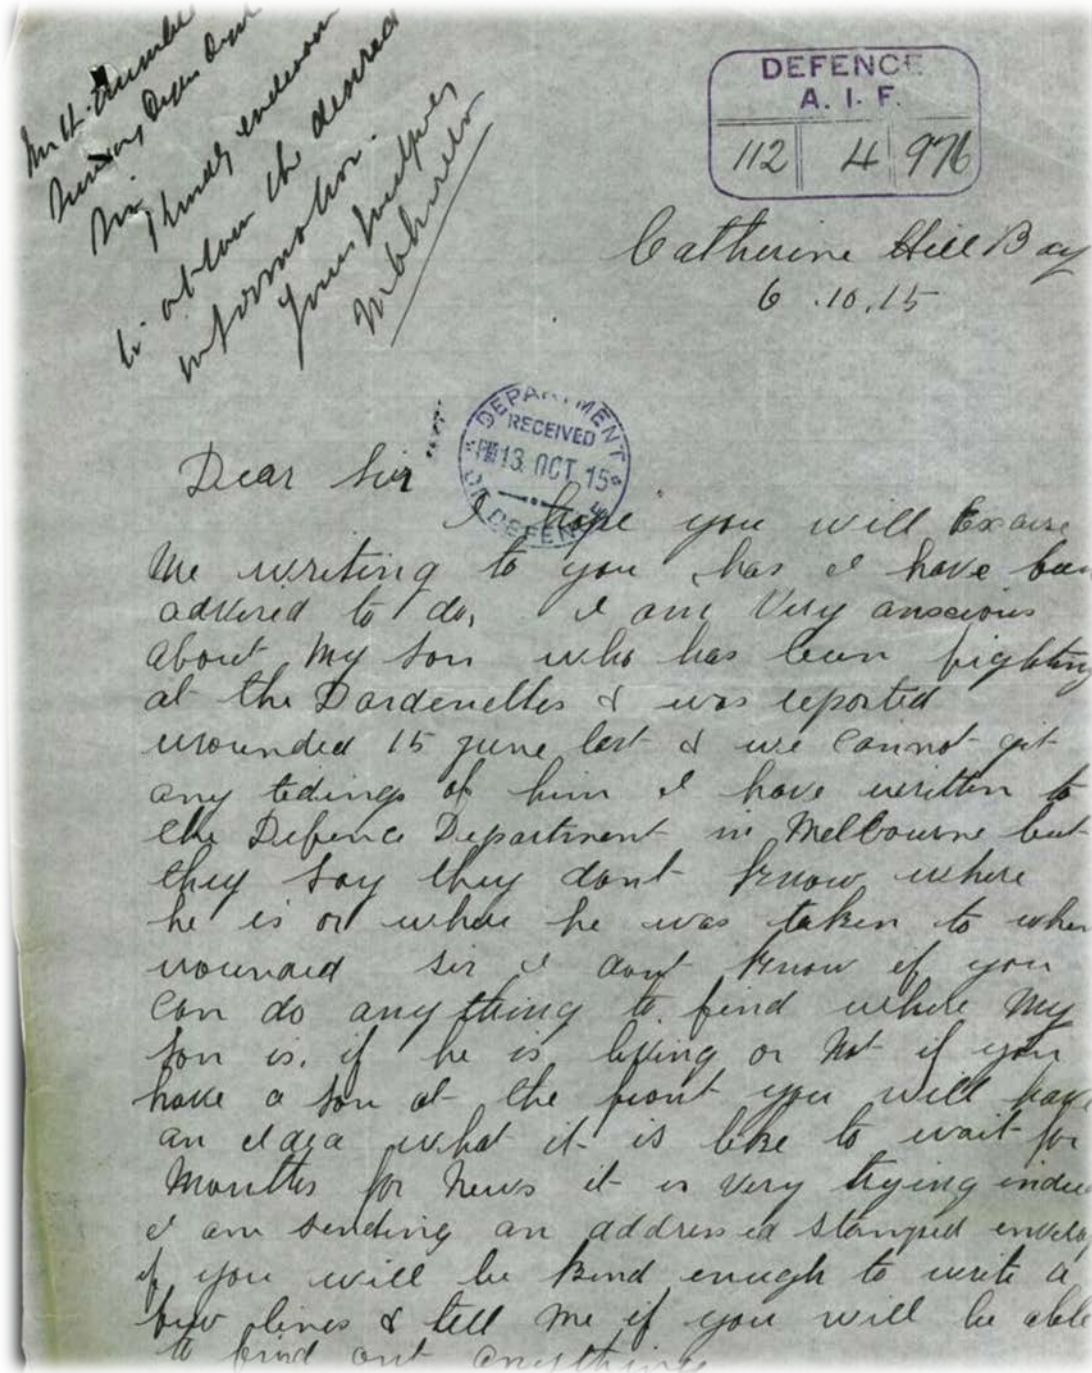 Sir
Kindly endeavour
to obtain the desired
information.
Yours
DEFENCE
A. I. F.
112 4 976
Catherine Hill Bay
6.10.15
DEPARTMENT
RECEIVED
13 OCT 15
OF DEFENCE
Dear Sir
I hope you will Excuse
Me writing to you has I have been
advised to do, I am Very anscious
about My son who has been fighting
at the Dardenelles & was reported
wounded 15 June last & we cannot get
any tidings of him I have written to
the Defence Department in Melbourne but
they say they dont know where
he is or where he was taken to when
wounded sir I dont know if you
can do anything to find where My
son is. if he is living or Not if you
have a son at the front you will have
an Idea what it is like to wait for
Months for News it is Very trying indeed
I am sending an addressed stamped envelo
if you will be kind enough to write a
few lines & tell Me if you will be able
to find out anything